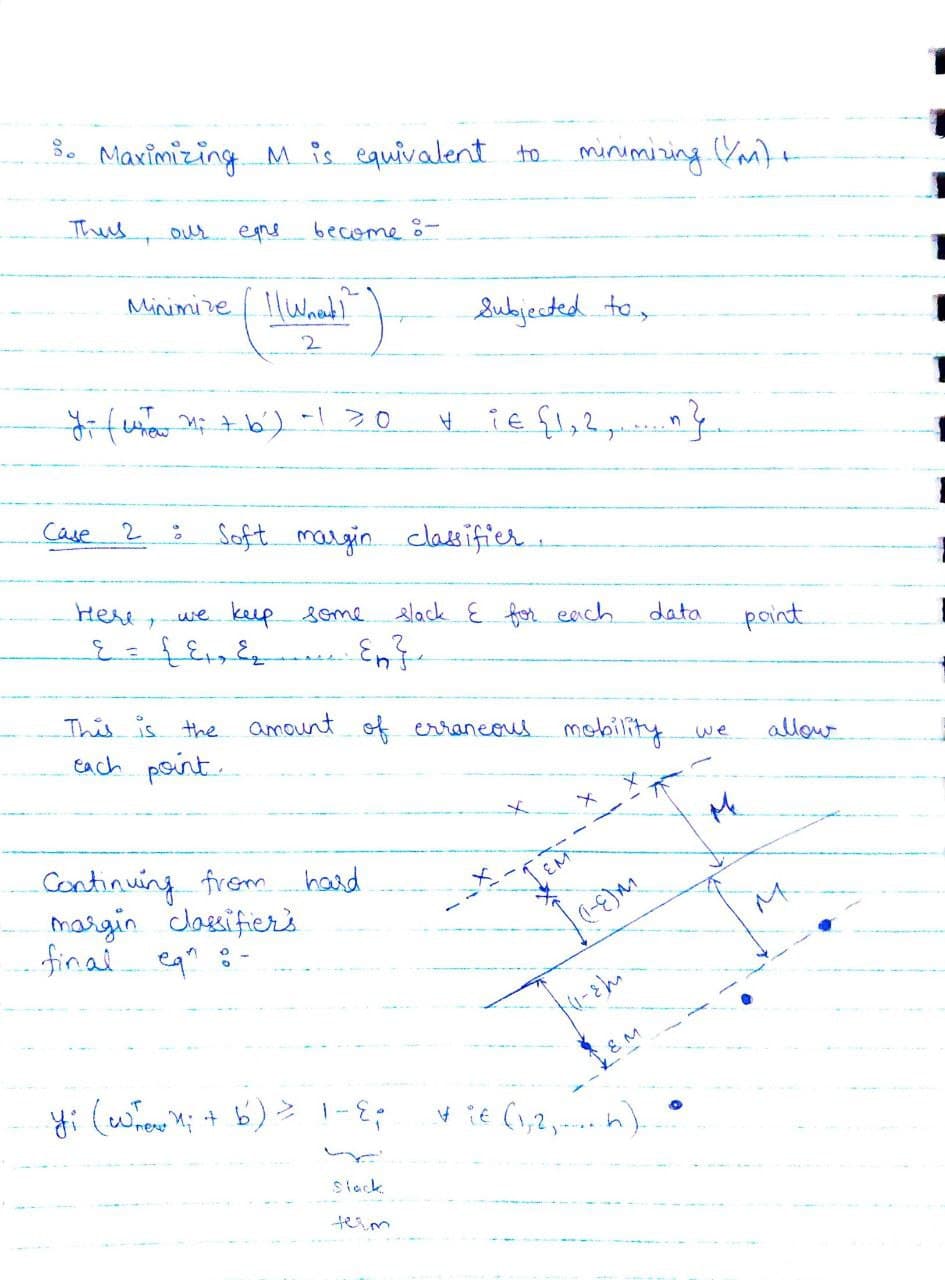 ∴ Maximizing M is equivalent to minimizing (1/M).
Thus, our eqns become :-
Minimize (||Wnew||² / 2), Subjected to,
yᵢ (wᵀnew xᵢ + b') - 1 ≥ 0 ∀ i ∈ {1, 2, ..... n}.
Case 2 : Soft margin classifier.
Here, we keep some slack ε for each data point
ε = {ε₁, ε₂ ...... εₙ}.
This is the amount of erraneous mobility we allow
each point.
M
εM
(1-ε)M
M
Continuing from hard
margin classifier's
final eqⁿ :-
(1-ε)M
εM
yᵢ (wᵀnew xᵢ + b') ≥ 1 - εᵢ ∀ i ∈ (1, 2, .... n)
slack
term